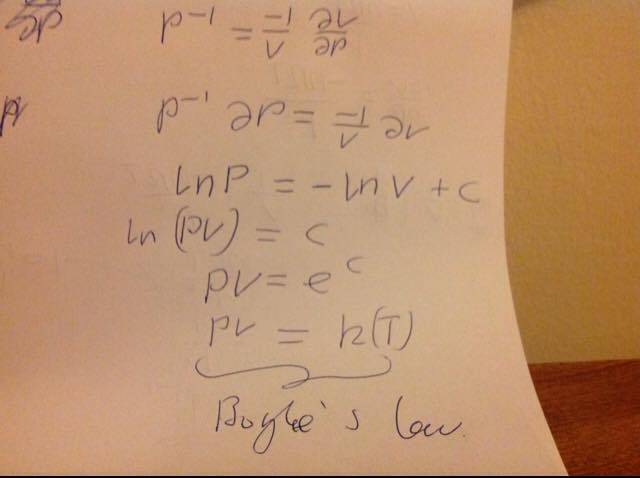 p⁻¹ = -1/V ∂V/∂p
p⁻¹ ∂p = -1/V ∂V
ln P = - ln V + c
ln (PV) = c
PV = e^c
PV = k(T)
Boyle's law.